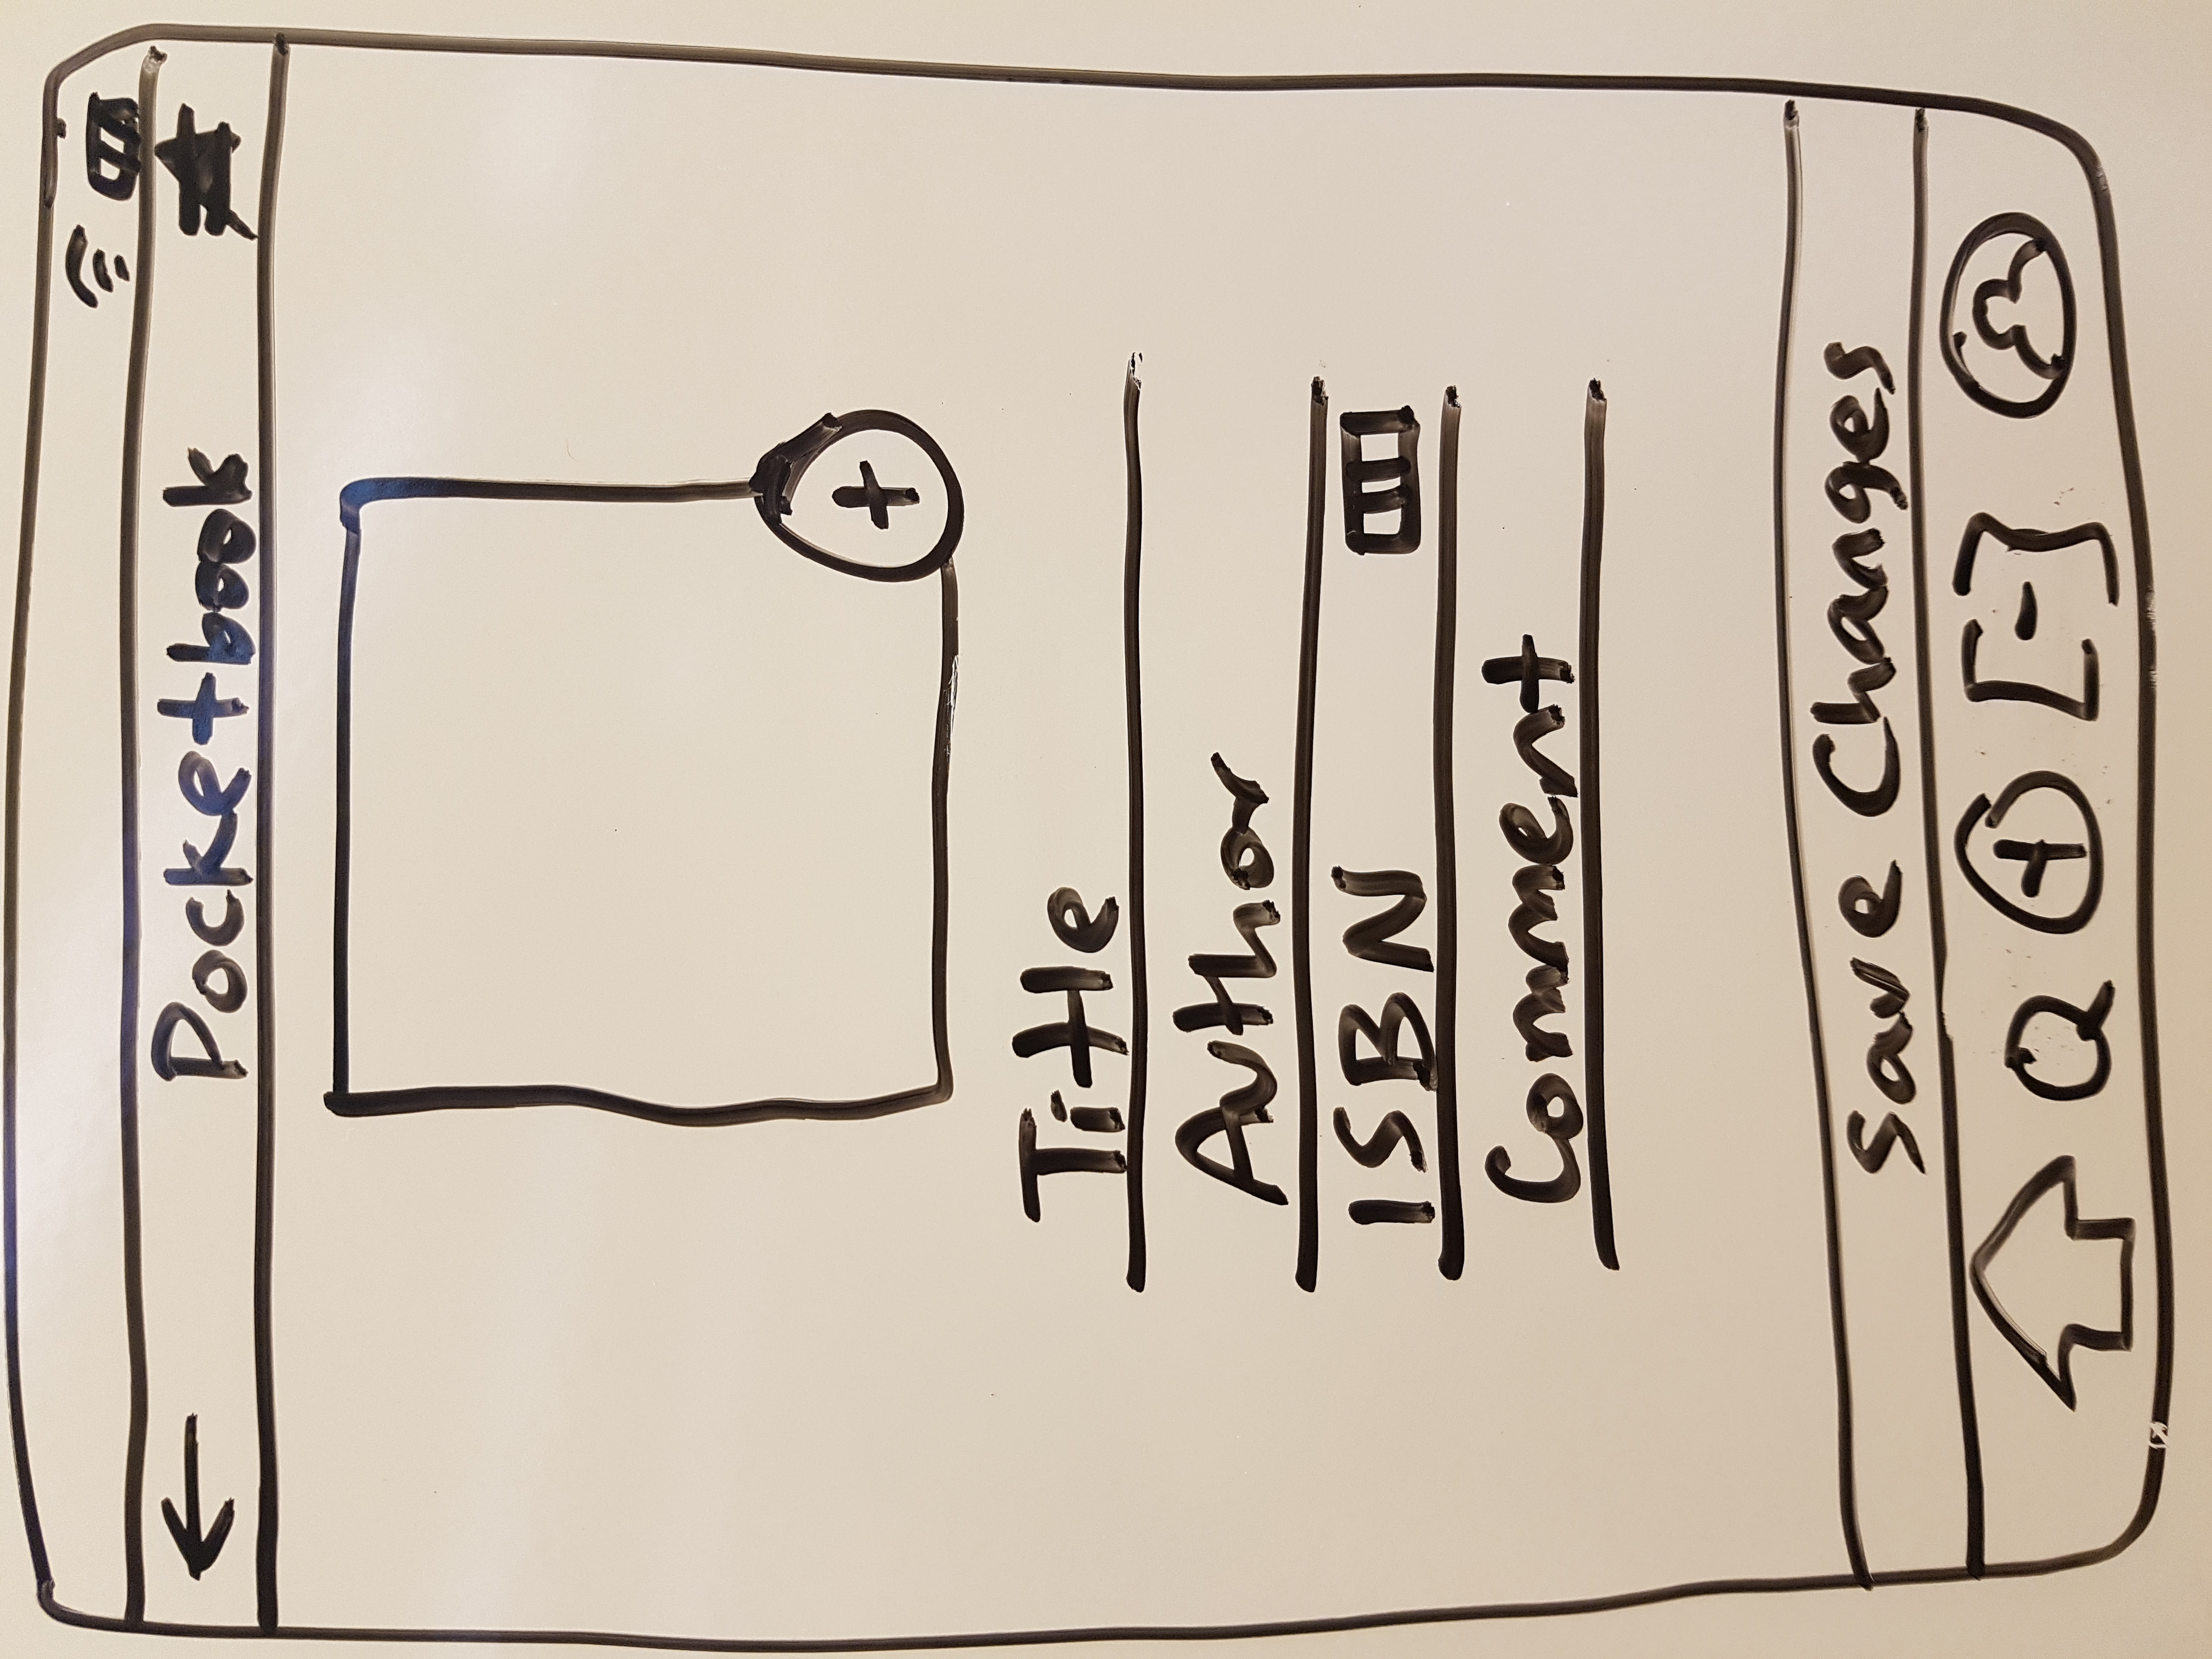 Pocketbook
Title
Author
ISBN
Comment
Save Changes